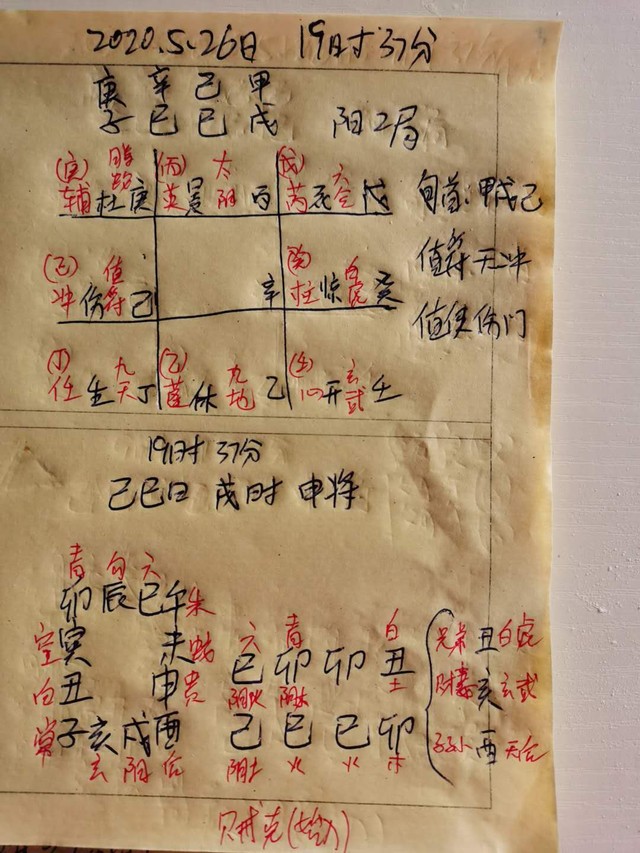 2020.5.26日 19时37分
庚 辛 己 甲
子 巳 巳 戌 阳2局
(庚) 腾蛇 (丙) 太 (戊) 六
辅 杜 庚 英 景 阴 丙 芮 死 合 戊 旬首:甲戌己
(己) 值 (癸) 白 值符天冲
冲 伤 符 己 辛 柱 惊 虎 癸
值使伤门
(丁) 九 (乙) 九 (壬) 玄
任 生 天 丁 蓬 休 地 乙 心 开 武 壬
19时37分
己巳日 戌时 申将
青 勾 六
卯 辰 巳 午 朱
空 寅 未 蛇 六 青 白 兄弟 丑 白虎
巳 卯 卯 丑
白 丑 申 贵 阴火 阴木 土 财 亥 玄武
常 子 亥 戌 酉 己 巳 巳 卯 子孙 酉 天后
玄 阴 后 阴土 火 火 木